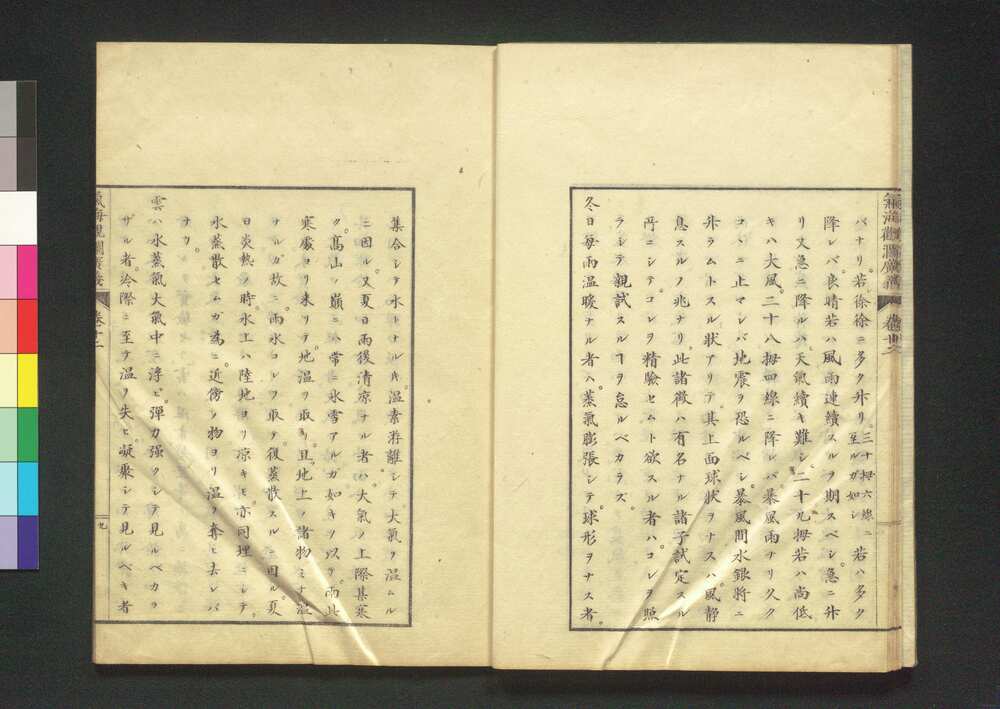 氣海觀瀾廣義
バナリ若徐徐ニ多ク升リ三十拇六線ニ至ルガ如シ若ハ多ク
降レバ良晴若ハ風雨連續スルヲ期スベシ急ニ升
リ又急ニ降ルハ天氣續キ難シ二十九拇若ハ尚低
キハ大風二十八拇四線ニ降レバ暴風雨ナリ久ク
コヽニ止マレバ地震ヲ恐ルベシ暴風間水銀將ニ
升ラムトスル狀アリテ其上面球狀ヲナスハ風靜
息スルノ兆ナリ此諸徵ハ有名ナル諸子試定スル
所ニシテコレヲ精驗セムト欲スル者ハコレヲ照
ラシテ親試スルヿヲ怠ルベカラズ
冬日每雨溫暖ナル者ハ蒸氣膨張シテ球形ヲナス者
集合シテ水トナル片溫素游離シテ大氣ヲ溫ムル
ニ因ル又夏日雨後淸凉ナル者ハ大氣ノ上際甚寒
ク高山ノ巓ニハ常ニ氷雪アルガ如キヲ以テ雨此
寒處ヨリ來リテ地溫ヲ取リ且地上ノ諸物ミナ溫
ナルガ故ニ雨水コレヲ取テ復蒸散スルニ因ル夏
日炎熱ノ時水上ハ陸地ヨリ凉キモ亦同理ニシテ
水蒸散セムガ爲ニ近傍ノ物ヨリ溫ヲ奪ヒ去レバ
ナリ
雲ハ水蒸氣大氣中ニ浮ビ彈力强クシテ見ルベカラ
ザル者冷際ニ至テ溫ヲ失ヒ凝聚シテ見ルベキ者
氣海觀瀾廣義
卷十二
九